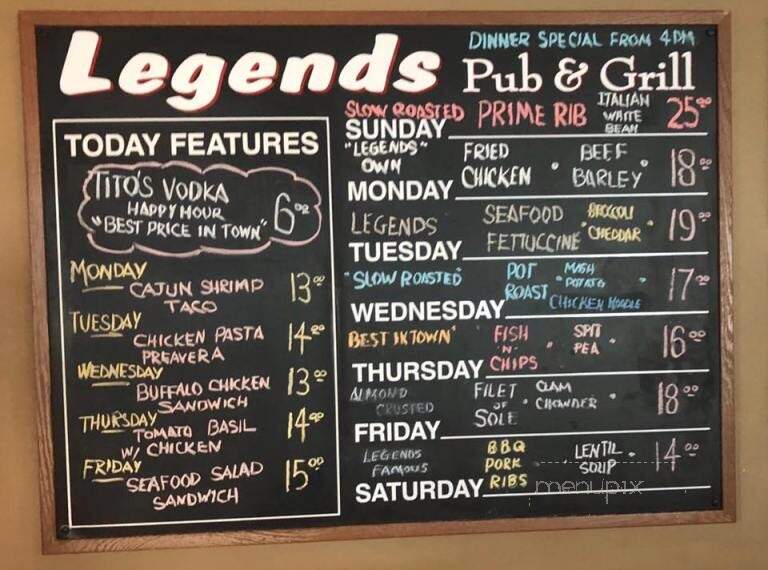 Legends
DINNER SPECIAL FROM 4PM
Pub & Grill
TODAY FEATURES
TITO'S VODKA
HAPPY HOUR
"BEST PRICE IN TOWN"
6.00
MONDAY
CAJUN SHRIMP
TACO
13.00
TUESDAY
CHICKEN PASTA
PREAVERA
14.00
WEDNESDAY
BUFFALO CHICKEN
SANDWICH
13.00
THURSDAY
TOMATO BASIL
W/ CHICKEN
14.00
FRIDAY
SEAFOOD SALAD
SANDWICH
15.00
SLOW ROASTED PRIME RIB
ITALIAN
WHITE
BEAN
25.00
SUNDAY
"LEGENDS"
OWN
FRIED
CHICKEN
BEEF
BARLEY
18.00
MONDAY
LEGENDS
SEAFOOD
FETTUCCINE
BROCCOLI
CHEDDAR
19.00
TUESDAY
"SLOW ROASTED"
POT
ROAST
MASH
POTATO
CHICKEN NOODLE
17.00
WEDNESDAY
BEST IN TOWN"
FISH
"N"
CHIPS
SPIT
PEA
16.00
THURSDAY
ALMOND
CRUSTED
FILET
OF
SOLE
CLAM
CHOWDER
18.00
FRIDAY
LEGENDS
FAMOUS
BBQ
PORK
RIBS
LENTIL
SOUP
14.00
SATURDAY
menupix